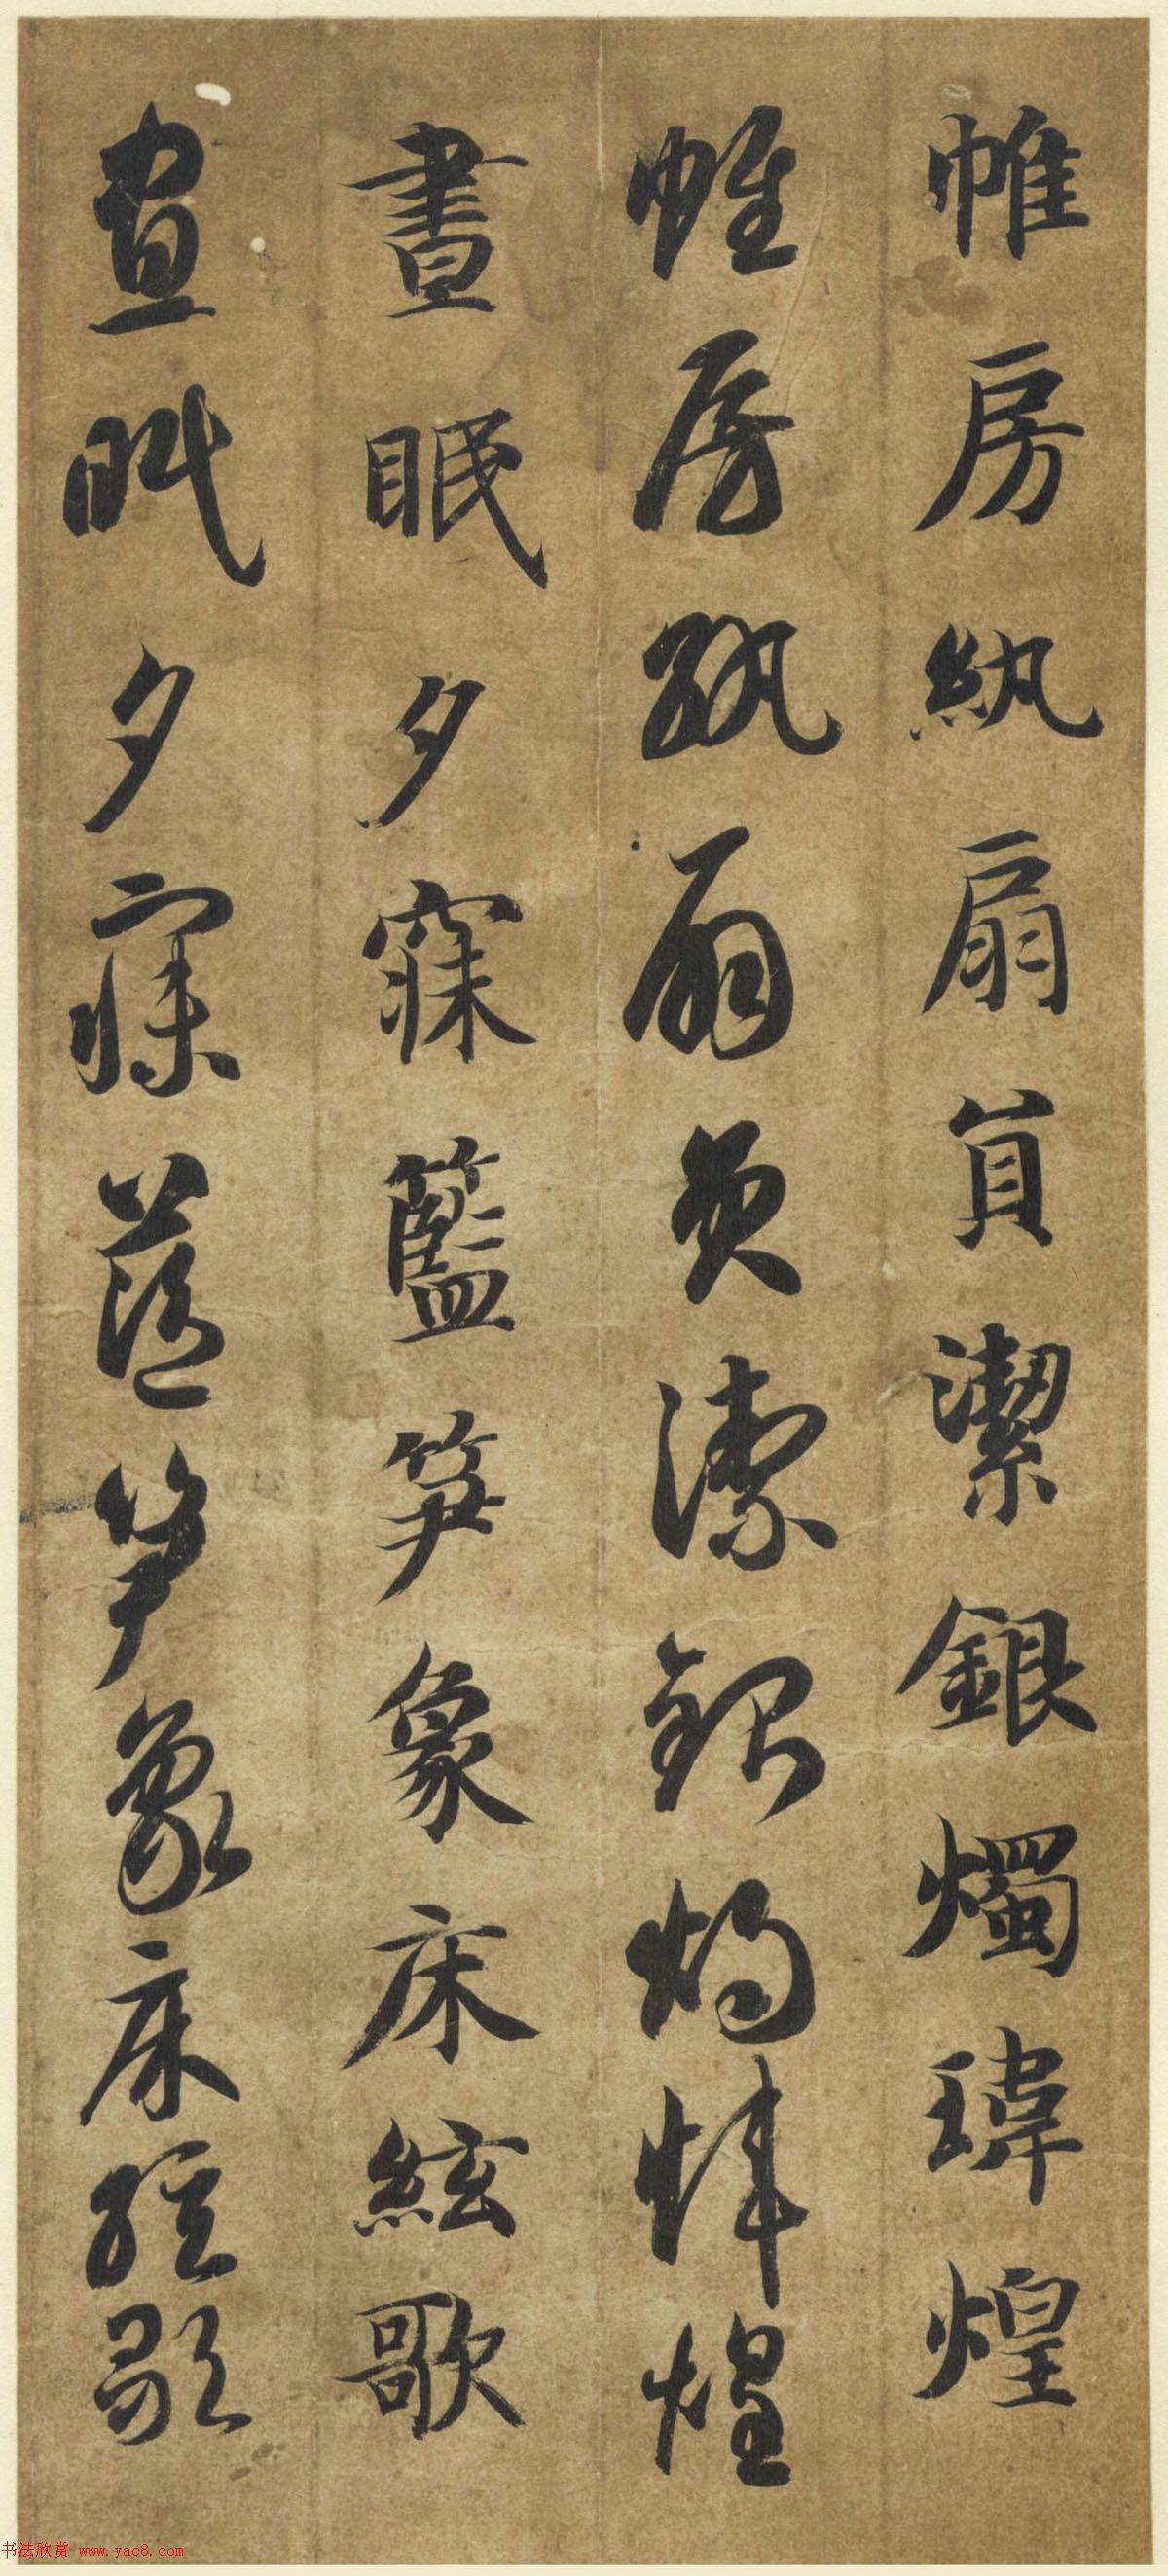 帷房紈扇員潔銀燭瑋煌
帷房紈扇員潔銀燭煒煌
晝眠夕寐籃笋象床絃歌
晝眠夕寐藍笋象床絃歌
书法欣赏 www.yac8.com